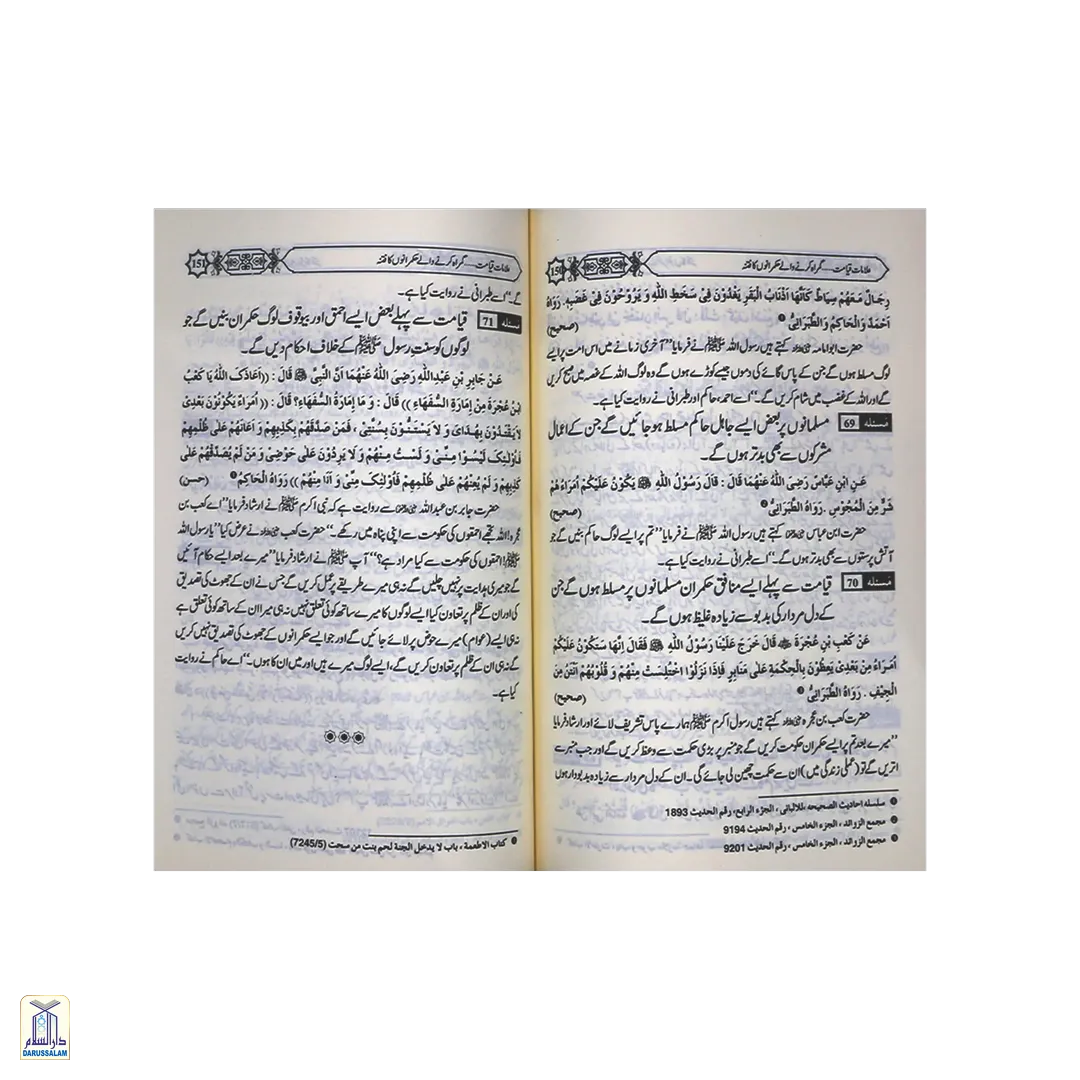 علامات قیامت.....گمراہ کرنے والے حکمرانوں کا فتنہ
150
رِجَالٌ مَعَهُمْ سِيَاطٌ كَأَنَّهَا اَذْنَابُ الْبَقَرِ يَغْدُوْنَ فِىْ سَخَطِ اللّٰهِ وَ يَرُوْحُوْنَ فِىْ غَضَبِهِ. رَوَاهُ
اَحْمَدُ وَالْحَاكِمُ وَ الطَّبَرَانِىُّ ❶ (صحيح)
حضرت ابو امامہ رضی اللہ عنہ کہتے ہیں رسول اللہ ﷺ نے فرمایا ’’آخری زمانے میں اس امت پر ایسے
لوگ مسلط ہوں گے جن کے پاس گائے کی دموں جیسے کوڑے ہوں گے وہ لوگ اللہ کے غصہ میں صبح کریں
گے اور اللہ کے غضب میں شام کریں گے۔‘‘ اسے احمد، حاکم اور طبرانی نے روایت کیا ہے۔
مَسئله 69 مسلمانوں پر بعض ایسے جاہل حاکم مسلط ہو جائیں گے جن کے اعمال
مشرکوں سے بھی بدتر ہوں گے۔
عَنِ ابْنِ عَبَّاسٍ رَضِىَ اللّٰهُ عَنْهُمَا قَالَ : قَالَ رَسُوْلُ اللّٰهِ ﷺ يَكُوْنُ عَلَيْكُمْ اُمَرَاءُ هُمْ
شَرٌّ مِنَ الْمَجُوْسِ .رَوَاهُ الطَّبَرَانِىُّ ❷ (صحيح)
حضرت ابن عباس رضی اللہ عنہما کہتے ہیں رسول اللہ ﷺ نے فرمایا ’’تم پر ایسے لوگ حاکم بنیں گے جو
آتش پرستوں سے بھی بدتر ہوں گے۔‘‘ اسے طبرانی نے روایت کیا ہے۔
مَسئله 70 قیامت سے پہلے ایسے منافق حکمران مسلمانوں پر مسلط ہوں گے جن
کے دل مردار کی بدبو سے زیادہ غلیظ ہوں گے۔
عَنْ كَعْبِ بْنِ عُجْرَةَ ﷺ قَالَ خَرَجَ عَلَيْنَا رَسُوْلُ اللّٰهِ ﷺ فَقَالَ اِنَّهَا سَتَكُوْنُ عَلَيْكُمْ
اُمَرَاءُ مِنْ بَعْدِىْ يَعِظُوْنَ بِالْحِكْمَةِ عَلٰى مَنَابِرٍ فَاِذَا نَزَلُوْا اخْتُلِسَتْ مِنْهُمْ وَ قُلُوْبُهُمْ اَنْتَنُ مِنَ
الْجِيَفِ . رَوَاهُ الطَّبَرَانِىُّ ❸ (صحيح)
حضرت کعب بن عجرہ رضی اللہ عنہ کہتے ہیں رسول اکرم ﷺ ہمارے پاس تشریف لائے اور ارشاد فرمایا
’’میرے بعد تم پر ایسے حکمران حکومت کریں گے جو منبر پر بڑی حکمت سے وعظ کریں گے اور جب منبر سے
اتریں گے تو (عملی زندگی میں) ان سے حکمت چھین لی جائے گی۔ ان کے دل مردار سے زیادہ بدبودار ہوں
❶ سلسله احاديث الصحيحه ،للالبانى ، الجزء الرابع، رقم الحديث 1893
❷ مجمع الزوائد ، الجزء الخامس ، رقم الحديث 9194
❸ مجمع الزوائد ، الجزء الخامس ، رقم الحديث 9201
علامات قیامت.....گمراہ کرنے والے حکمرانوں کا فتنہ
151
گے۔‘‘ اسے طبرانی نے روایت کیا ہے۔
مَسئله 71 قیامت سے پہلے بعض ایسے احمق اور بیوقوف لوگ حکمران بنیں گے جو
لوگوں کو سنت رسول ﷺ کے خلاف احکام دیں گے۔
عَنْ جَابِرِ بْنِ عَبْدِاللّٰهِ رَضِىَ اللّٰهُ عَنْهُمَا اَنَّ النَّبِىَّ ﷺ قَالَ : ((اَعَاذَكَ اللّٰهُ يَا كَعْبُ
ابْنُ عُجْرَةَ مِنْ اِمَارَةِ السُّفَهَاءِ )) قَالَ : وَ مَا اِمَارَةُ السُّفَهَاءِ؟ قَالَ : ((اُمَرَاءٌ يَكُوْنُوْنَ بَعْدِىْ
لاَ يَقْتَدُوْنَ بِهُدَاىَ وَ لاَ يَسْتَنُّوْنَ بِسُنَّتِىْ ، فَمَنْ صَدَّقَهُمْ بِكَذِبِهِمْ وَ اَعَانَهُمْ عَلٰى ظُلْمِهِمْ
فَاُولٰئِكَ لَيْسُوْا مِنِّىْ وَ لَسْتُ مِنْهُمْ وَ لاَ يَرِدُوْنَ عَلٰى حَوْضِىْ وَ مَنْ لَمْ يُصَدِّقْهُمْ عَلٰى
كَذِبِهِمْ وَ لَمْ يُعِنْهُمْ عَلٰى ظُلْمِهِمْ فَاُولٰئِكَ مِنِّىْ وَ اَنَا مِنْهُمْ )) رَوَاهُ الْحَاكِمُ ❶ (حسن)
حضرت جابر بن عبداللہ رضی اللہ عنہما سے روایت ہے کہ نبی اکرم ﷺ نے ارشاد فرمایا ’’اے کعب بن
عجرہ! اللہ تجھے احمقوں کی حکومت سے اپنی پناہ میں رکھے۔‘‘ حضرت کعب رضی اللہ عنہ نے عرض کیا ’’یا رسول اللہ
ﷺ! احمقوں کی حکومت سے کیا مراد ہے؟‘‘ آپ ﷺ نے ارشاد فرمایا ’’میرے بعد ایسے حکام آئیں
گے جو میری ہدایت پر نہیں چلیں گے نہ ہی میرے طریقے پر عمل کریں گے جس نے ان کے جھوٹ کی تصدیق
کی اور ان کے ظلم پر تعاون کیا ایسے لوگوں کا میرے ساتھ کوئی تعلق نہیں نہ ہی میرا ان کے ساتھ کوئی تعلق ہے
نہ ہی ایسے (عوام) میرے حوض پر لائے جائیں گے اور جو ایسے حکمرانوں کے جھوٹ کی تصدیق نہیں کریں
گے نہ ہی ان کے ظلم پر تعاون کریں گے، ایسے لوگ میرے ہیں اور میں ان کا ہوں۔‘‘ اسے حاکم نے روایت
کیا ہے۔
❶ كتاب الاطعمة ، باب لا يدخل الجنة لحم نبت من سحت (7245/5)
دارالسلام
DARUSSALAM